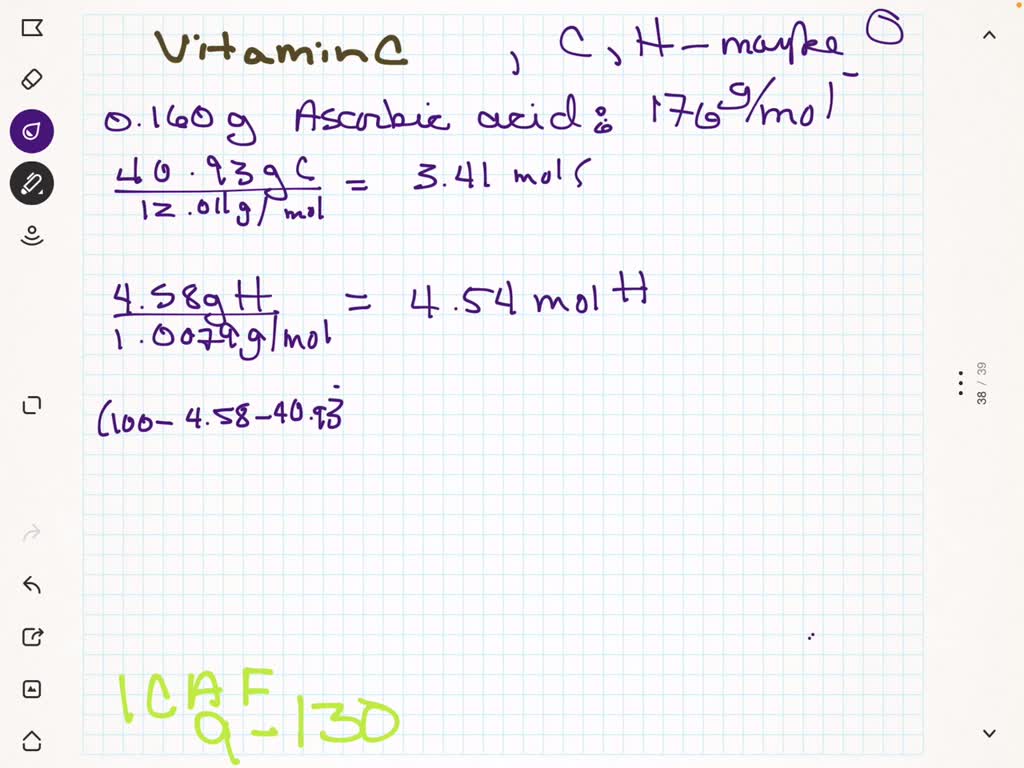 Vitamin C , C, H - maybe O
0.160 g Ascorbic acid: 176 g/mol
40.93 g C / 12.011 g/mol = 3.41 mol C
4.58 g H / 1.0079 g/mol = 4.54 mol H
(100 - 4.58 - 40.93
1CAF
9-130
38 / 39